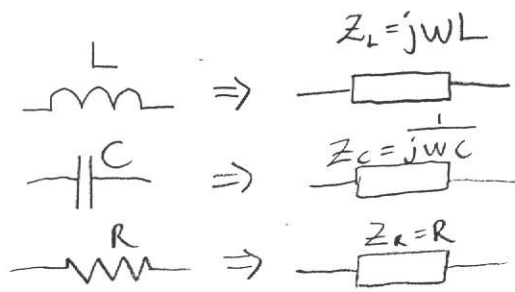 L
⇒
Z_L = jwL
C
⇒
Z_C = 1/jwC
R
⇒
Z_R = R